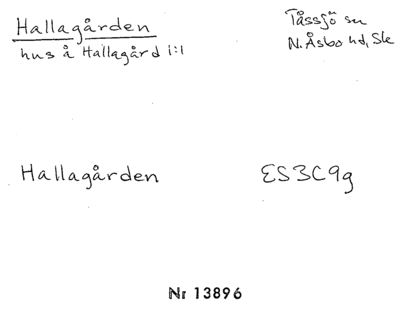 Hallagården
hus å Hallagård 1:1
Tåssjö sn
N. Åsbo hd, Sk
Hallagården
ES3C9g
Nr 13896